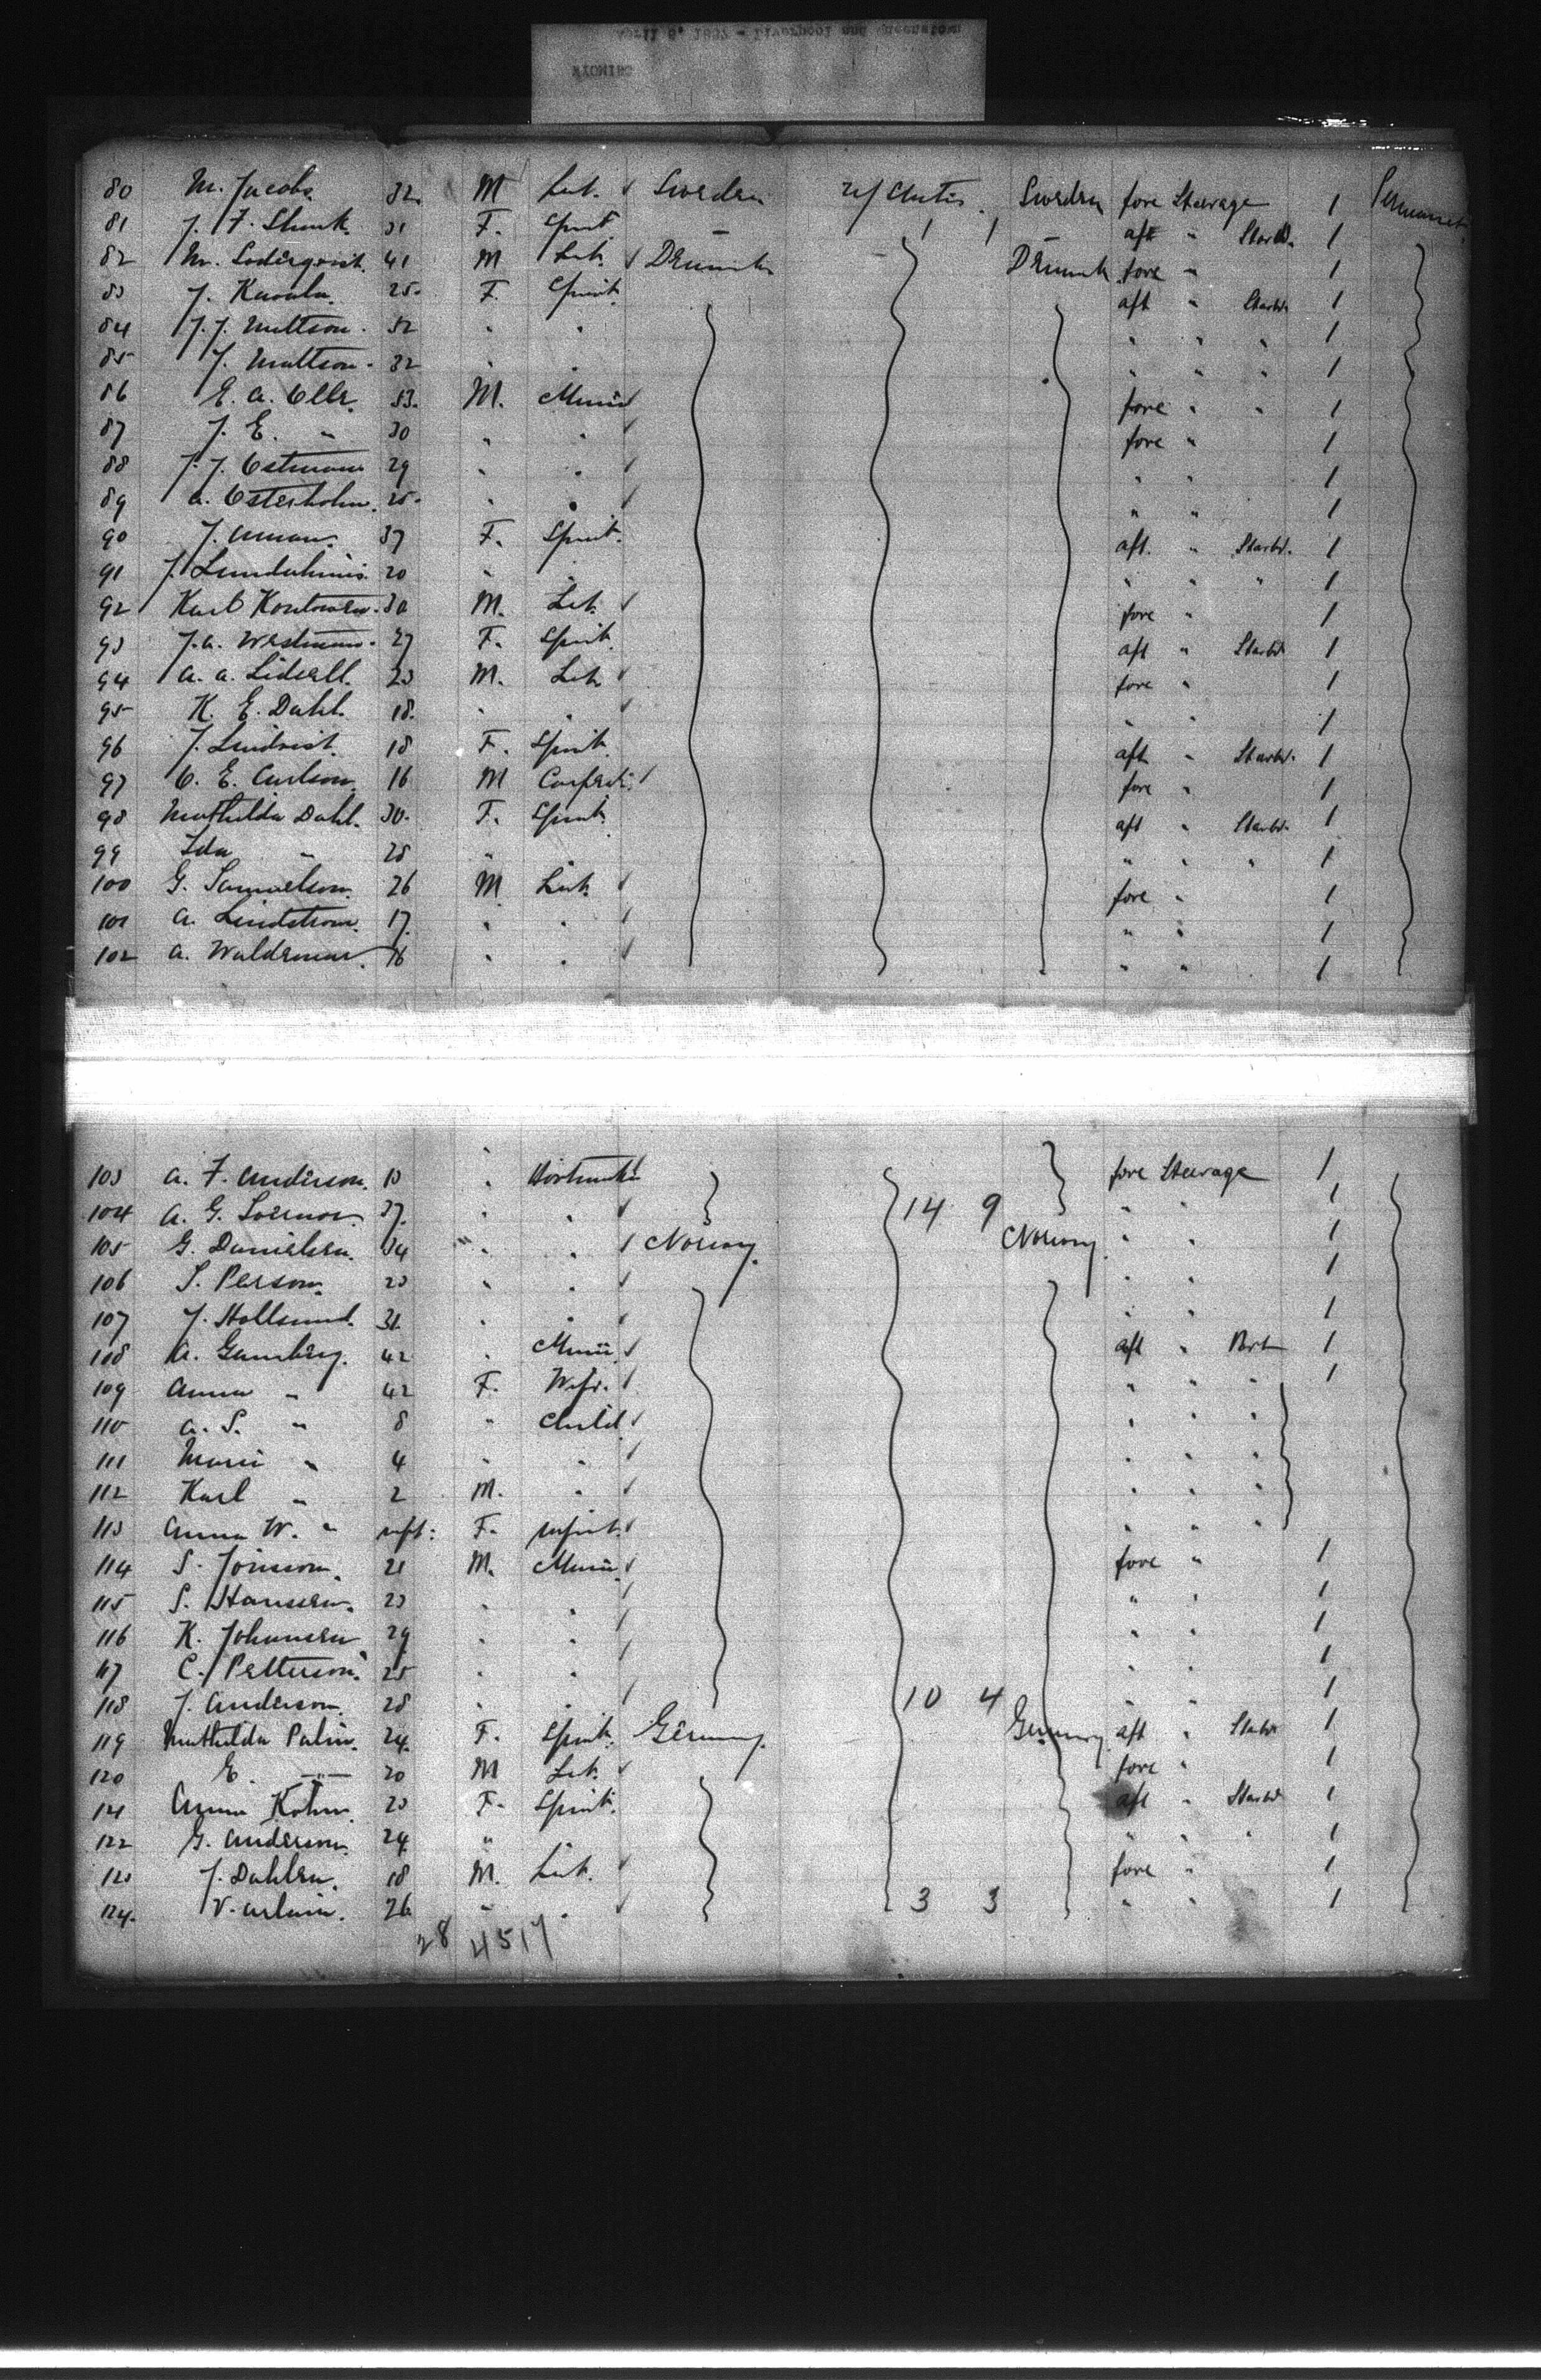 April 6, 1887 - Liverpool and Queenstown
WYOMING
80 M. Jacobs. 32 M Lab. Sweden U/States. Sweden fore Steerage 1
81 J. F. Shunk. 31 F. Spinst " 1 1 " aft " Starbd. 1
82 M. Soderqvist. 41 M Lab. Denmark Denmark fore " 1
83 J. 25. F. Spinst. aft " Starbd. 1
84 J. J. Mattson. 32 " " " " " 1
85 J. Mattson. 32 " " " " " 1
86 E. A. Olls. 33. M. Miner fore " " 1
87 J. E. " 30 " " fore " 1
88 J. J. Ostman 29 " " " " 1
89 A. Osterholm. 25. " " " " 1
90 J. 37 F. Spinst. aft. " Starbd. 1
91 J. 20 " " " " " 1
92 Karl 30 M. Lab. fore " 1
93 J. A. Westman. 27 F. Spinst. aft " Starbd 1
94 A. A. Lidsall. 23 M. Lab. fore " 1
95 K. E. Dahl. 18. " " " " 1
96 J. Lindvist. 18 F. Spinst. aft " Starbd. 1
97 O. E. Carlson. 16 M fore " 1
98 Mathilda Dahl. 30. F. Spinst. aft " Starbd. 1
99 Ida " 25 " " " " " 1
100 G. Samuelson. 26 M Lab. fore " 1
101 A. Lindstrom. 17. " " " " 1
102 A. Waldemar. 16 " " " " 1
103 A. F. Anderson. 13 " fore Steerage 1
104 A. G. 37. " " 14 9 " " 1
105 G. Danielsen. 34 " " Norway. Norway. " " 1
106 S. Person. 23 " " " " 1
107 J. Hallsund. 31. " " " " 1
108 A. Gamberg. 42 " Miner. aft " Port 1
109 Anna " 42 F. Wife. " " " 1
110 A. S. " 8 " Child " " "
111 Maria " 4 " " " " "
112 Karl " 2 M. " " " "
113 Anna W. " inft: F. Infant. " " "
114 S. Jonsson. 21 M. Miner. fore " 1
115 S. Hansen. 23 " " " " 1
116 K. Johansen 29 " " " " 1
117 C. Petterson. 25 " " " " 1
118 J. Anderson. 28 " " 10 4 " " 1
119 Mathilda Palm. 24. F. Spinst. Germany. Germany. aft " Starbd 1
120 E. " 20 M Lab. fore " 1
121 Anna Kohn. 23 F. Spinst. aft " Starbd 1
122 G. Anderson. 24. " " " " " 1
123 J. Dahlen. 18 M. Lab. fore " 1
124. V. 26 " " 3 3 " " 1
28 45 17